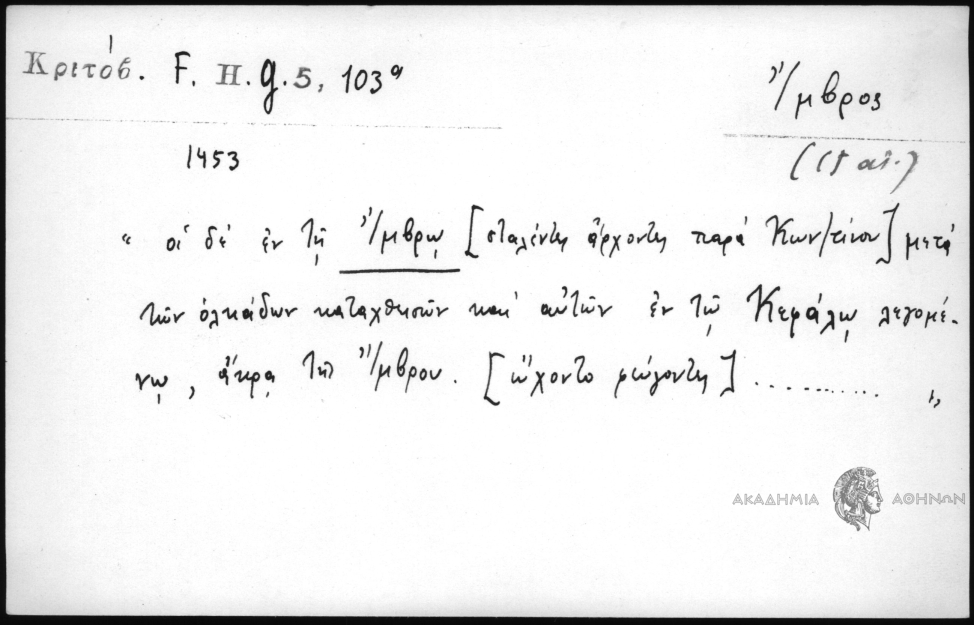 Κριτόβ. F. H. g. 5, 103ᵃ
Ἴμβρος
1453
(15 αἰ.)
“ οἱ δὲ ἐν τῇ Ἴμβρῳ [σταλέντες ἄρχοντες παρὰ Κων/τίνου] μετὰ
τῶν ὁλκάδων καταχθεισῶν καὶ αὐτῶν ἐν τῷ Κεφάλῳ λεγομέ-
νῳ, ἄκρᾳ τῆς Ἴμβρου. [ᾤχοντο φεύγοντες] .......... „
ΑΚΑΔΗΜΙΑ ΑΘΗΝΩΝ